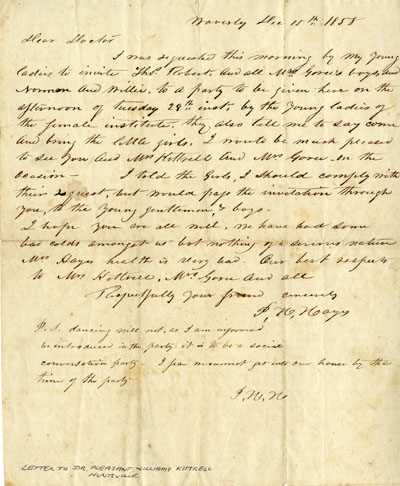 Waverly Dec 15th 1858
Dear Doctor
I was requested this morning by my Young
ladies to invite Thos, Robert, and all Mrs Gores boys, and
Norman and Willie, to a party to be given here on the
afternoon of tuesday 28th inst, by the Young ladies of
the female institute, they also tell me to say come
and bring the little girls, I would be much pleased
to see you and Mrs Kittrell and Mrs Gore on the
occasion — I told the Girls, I should comply with
their request, but would pass the invitation through
you, to the Young gentlemen, & boys.
I hope you are all well, we have had some
bad colds amongst us but nothing of a serious nature
Mrs Hays health is very bad. Our best respects
to Mrs Kittrell, Mrs Gore and all
Respectfully your friend sincerely
P, H, Hays
P. S. dancing will not, as I am informed
be introduced in the party. it is to be a social
conversation party — I fear we cannot get into our house by the
time of the party
P. H. H
LETTER TO DR PLEASANT WILLIAMS KITTRELL
HUNTSVILLE